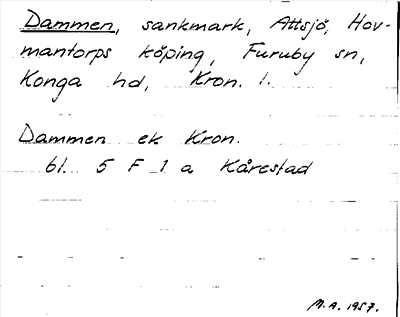 Dammen, sankmark, Attsjö, Hov-
mantorps köping, Furuby sn,
Konga hd, Kron. l.
Dammen ek Kron.
bl. 5 F 1 a Kårestad
M.A. 1957.